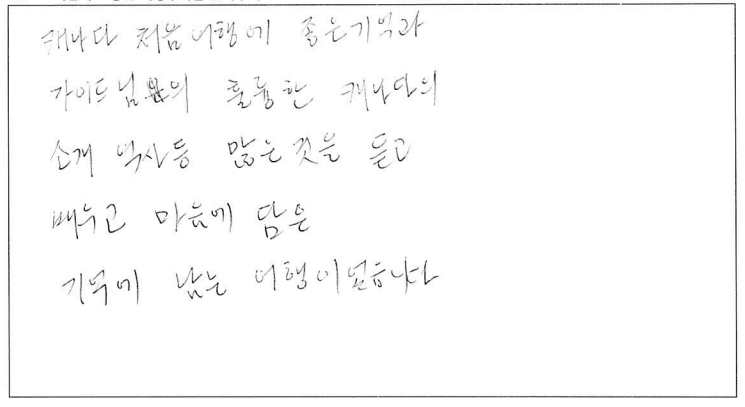 캐나다 처음여행에 좋은기억과
가이드님의 훌륭한 캐나다의
소개 역사등 많은것을 듣고
배우고 마음에 담은
기억에 남는 여행이었습니다